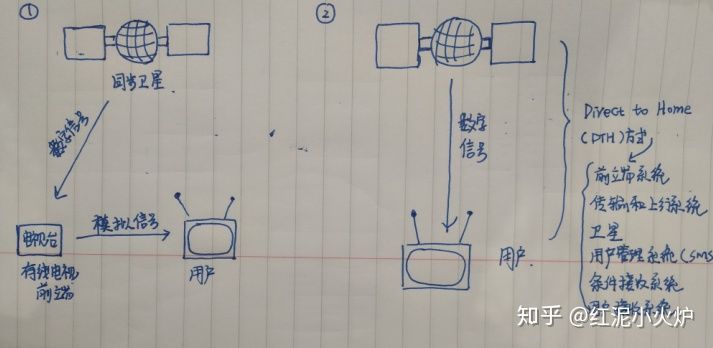 ①
同步卫星
数字信号
电视台
模拟信号
有线电视
前端
用户
②
数字
信号
用户
Direct to Home
(DTH)方式
前端系统
传输和上行系统
卫星
用户管理系统(SMS
条件接收系统
接收系统
知乎 @红泥小火炉